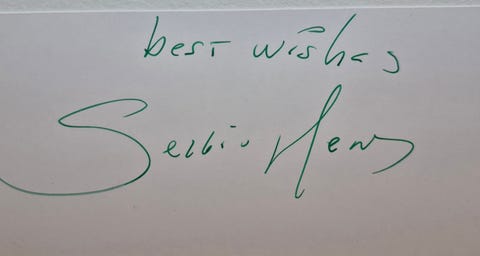 best wishes
Sergio